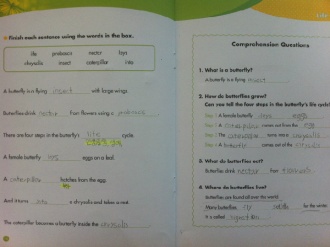 Finish each sentence using the words in the box.
life proboscis nectar lays
chrysalis insect caterpillar into
A butterfly is a flying insect with large wings.
Butterflies drink nectar from flowers using a proboscis
There are four steps in the butterfly's life cycle.
A female butterfly lays eggs on a leaf.
A caterpillar hatches from the egg.
And it turns into a chrysalis and takes a rest.
The caterpillar becomes a butterfly inside the
Comprehension Questions
1. What is a butterfly?
A butterfly is a flying insect
2. How do butterflies grow?
Can you tell the four steps in the butterfly's life cycle?
A female butterfly lays eggs
A caterpillar comes out from the egg
The caterpillar turns into a chrysalis
A butterfly comes out of the
3. What do butterflies eat?
Butterflies drink nectar from
4. Where do butterflies live?
Butterflies are found all over the world.
Many butterflies fly for the winter.
It is called